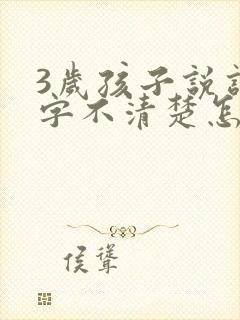 3歲孩子說
字不清楚怎
侯聳